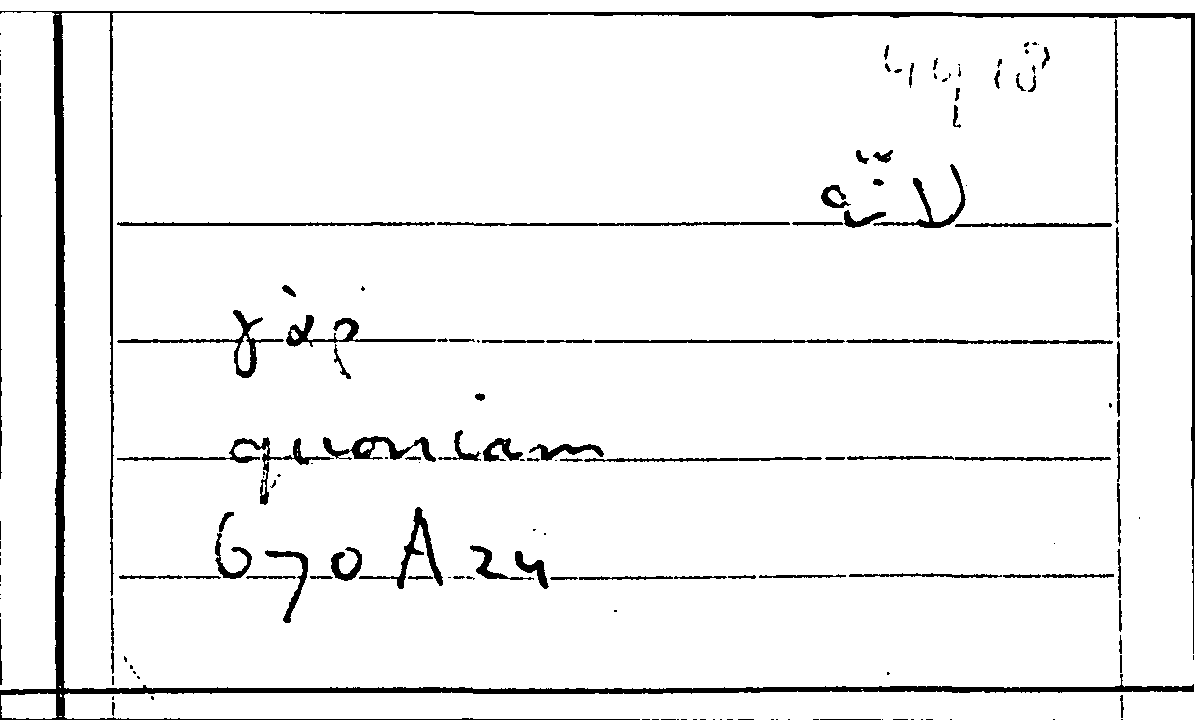 4418
γὰρ
quoniam
670 A 24